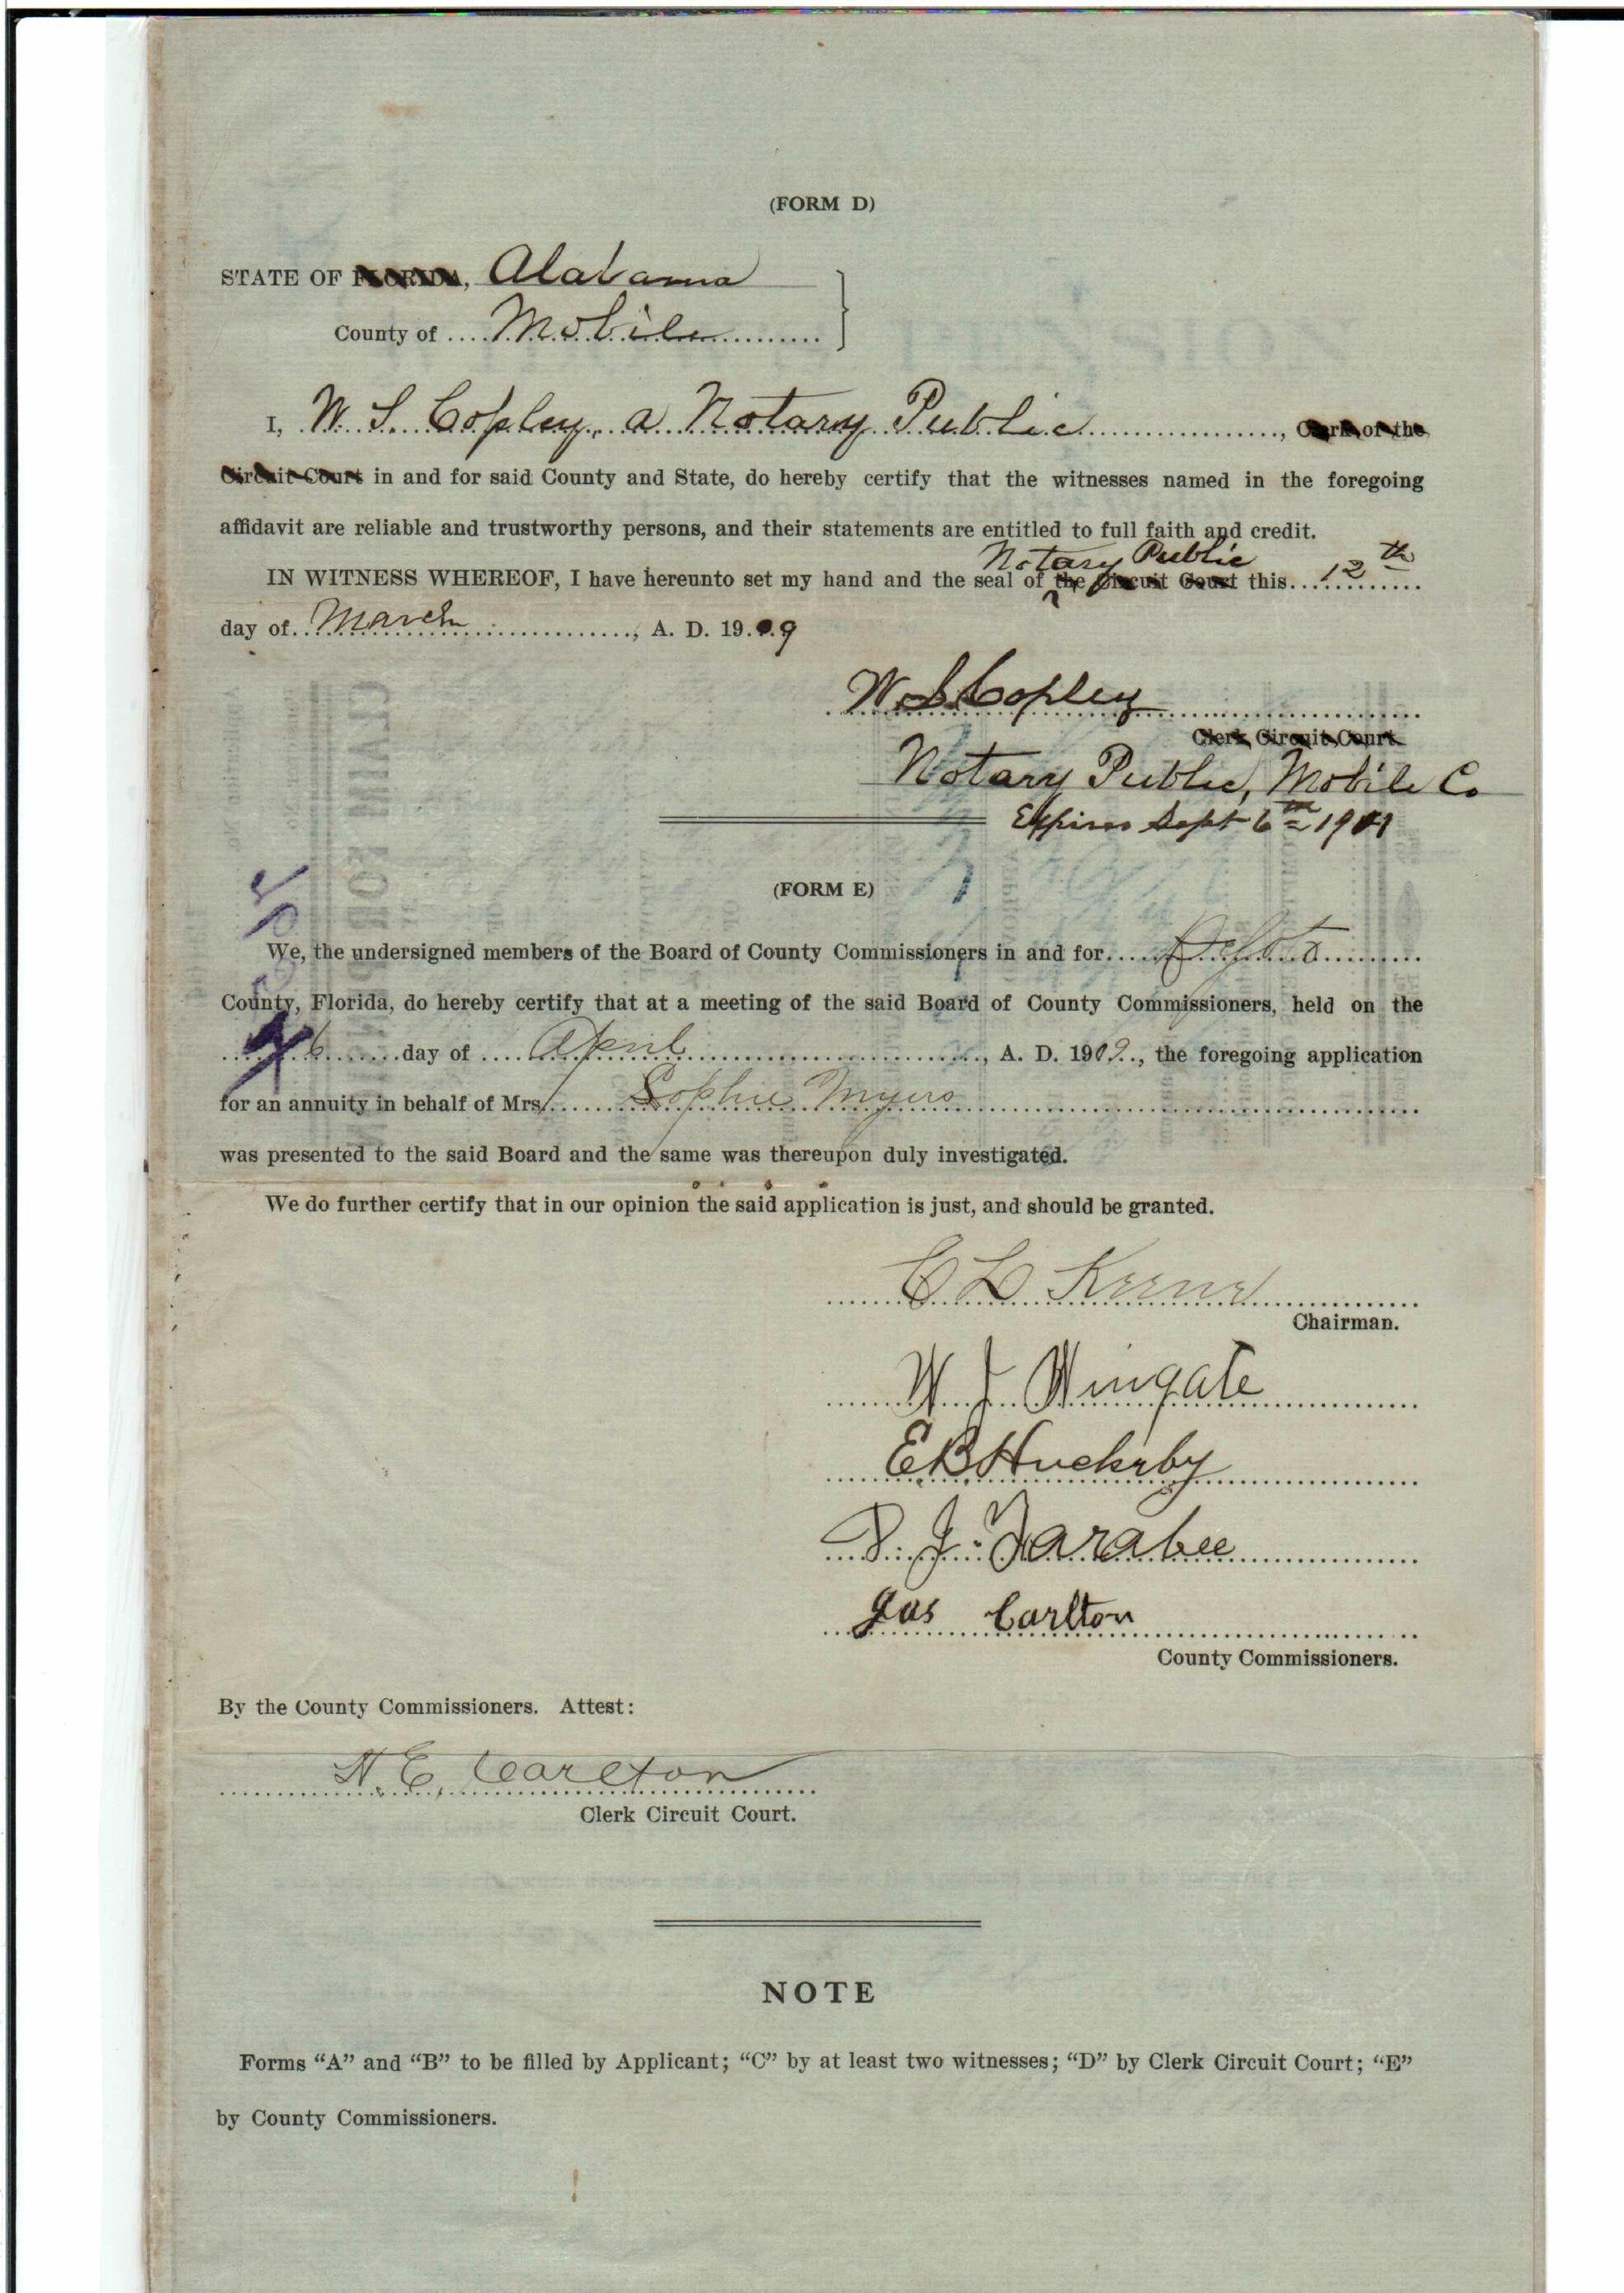 (FORM D)
STATE OF FLORIDA, Alabama
County of Mobile
I, W. S. Copley, a Notary Public, Clerk of the
Circuit Court in and for said County and State, do hereby certify that the witnesses named in the foregoing
affidavit are reliable and trustworthy persons, and their statements are entitled to full faith and credit.
Notary Public
IN WITNESS WHEREOF, I have hereunto set my hand and the seal of the Circuit Court this 12th
day of March, A. D. 1909
W. S. Copley
Clerk Circuit Court.
Notary Public, Mobile Co
Expires Sept 6th
(FORM E)
We, the undersigned members of the Board of County Commissioners in and for DeSoto
County, Florida, do hereby certify that at a meeting of the said Board of County Commissioners, held on the
6 day of April, A. D. 1909, the foregoing application
for an annuity in behalf of Mrs. Sophie Myers
was presented to the said Board and the same was thereupon duly investigated.
We do further certify that in our opinion the said application is just, and should be granted.
C L Keene
Chairman.
W J Wingate
E B Huckeby
P. J. Farabee
Jas Carlton
County Commissioners.
By the County Commissioners. Attest:
Carlton
Clerk Circuit Court.
NOTE
Forms “A” and “B” to be filled by Applicant; “C” by at least two witnesses; “D” by Clerk Circuit Court; “E”
by County Commissioners.